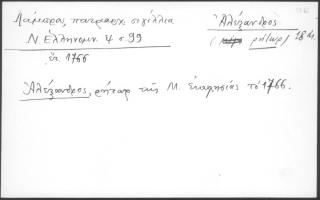 Λάμπρος, πατριαρχ. σιγίλλια
Ν. Ελληνομν. 4 σ 99
ἔτ. 1766
Ἀλέξανδρος
ῥήτωρ) 18 αι.
Ἀλέξανδρος, ῥήτωρ τῆς Μ. ἐκκλησίας τὸ 1766.